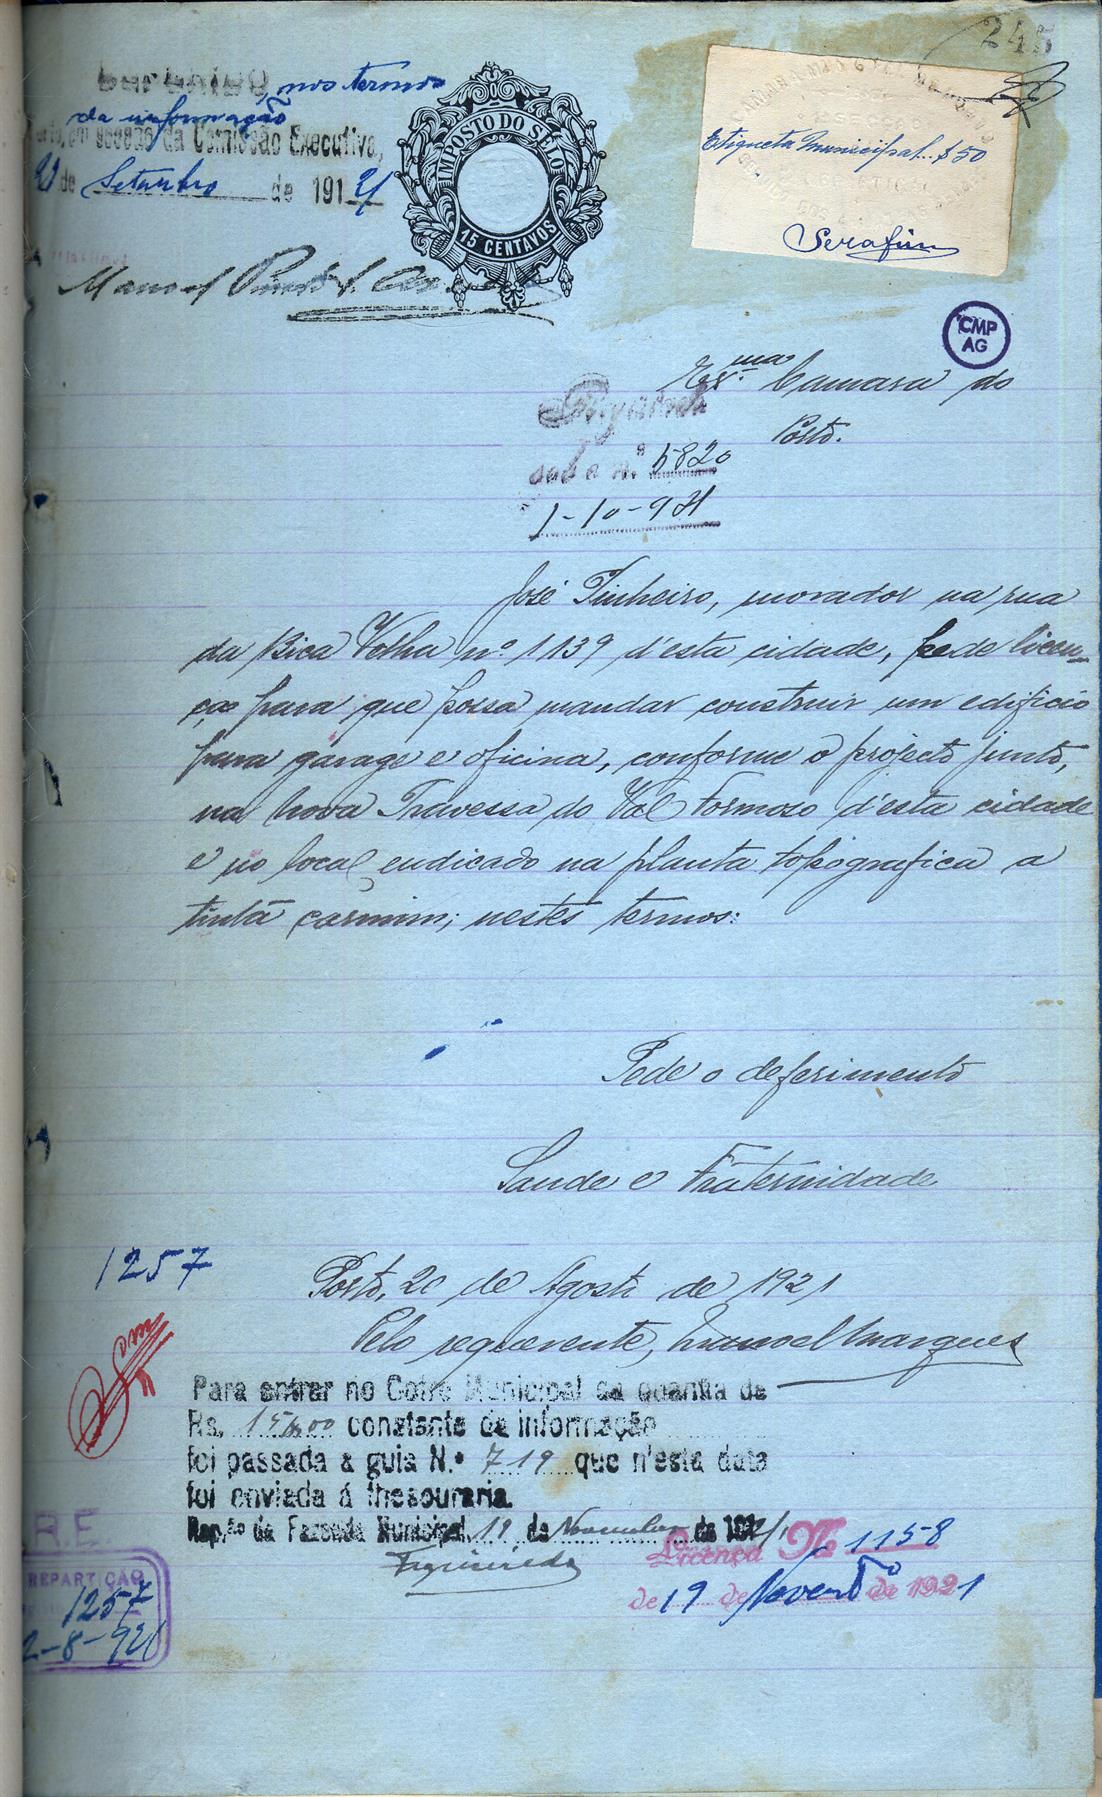 245
nos termos
da informação
em sessão da Comissão Executiva,
21 de Setembro de 1921
IMPOSTO DO SELO
15 CENTAVOS
Etiqueta Municipal.. $50
Serafim
CMP
AG
Manoel Pinto
Exma Camara do
Porto.
Registada
sob o n.º 5820
1-10-921
José Pinheiro, morador na rua
da Bica Velha nº 1139 d'esta cidade, pede licen-
ça para que possa mandar construir um edificio
para garage e oficina, conforme o projecto junto,
na Nova Travessa do Val Formoso d'esta cidade
e no local endicado na planta topografica a
tinta carmim; nestes termos:
Pede o deferimento
Saude e Fraternidade
1257
Porto, 20 de Agosto de 1921
Pelo requerente, Manoel Marques
Para entrar no Cofre Municipal da quantia de
Rs. 15$00 constante da informação
foi passada a guia N.º 719 que n'esta data
foi enviada á thesouraria.
Rep.ção da Fazenda Municipal, 19 de Novembro de 1921.
Figueiredo
Licença Nº 1158
de 19 de Novembro de 1921
R.E.
REPARTIÇÃO
1257
2-8-921